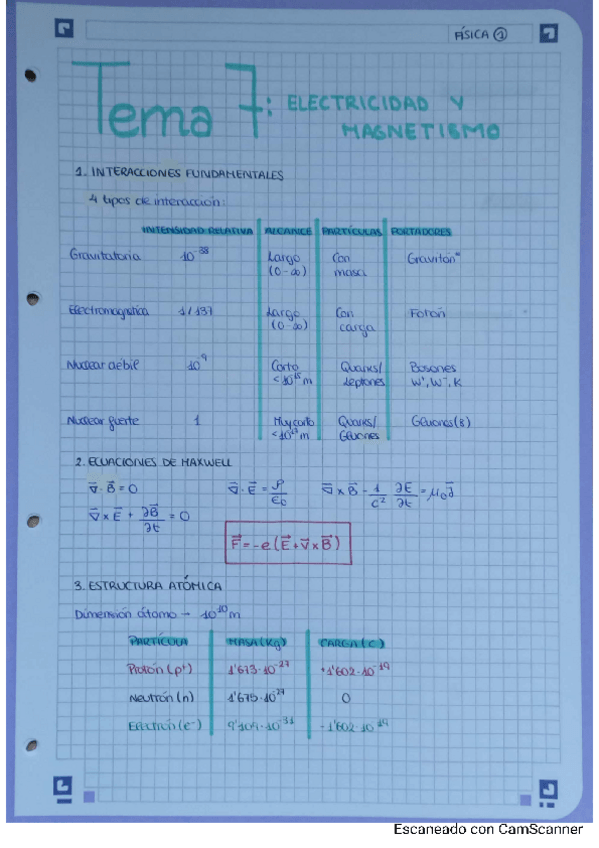 FÍSICA ①
Tema 7: ELECTRICIDAD Y
MAGNETISMO
1. INTERACCIONES FUNDAMENTALES
4 tipos de interacción:
INTENSIDAD RELATIVA ALCANCE PARTÍCULAS PORTADORES
Gravitatoria 10⁻³⁸ Largo (0-∞) Con masa Gravitón"
Electromagnética 1/137 Largo (0-∞) Con carga Fotón
Nuclear débil 10⁻⁹ Corto <10⁻¹⁵m Quarks/ Leptones Bosones W⁺, W⁻, K
Nuclear fuerte 1 Muy corto <10⁻¹³m Quarks/ Gluones Gluones (8)
2. ECUACIONES DE MAXWELL
∇·B⃗ = 0 ∇·E⃗ = ρ/ε₀ ∇×B⃗ - 1/c² ∂E⃗/∂t = μ₀J⃗
∇×E⃗ + ∂B⃗/∂t = 0
F⃗ = -e(E⃗ + v⃗×B⃗)
3. ESTRUCTURA ATÓMICA
Dimensión átomo → 10⁻¹⁰m
PARTÍCULA MASA (Kg) CARGA (C)
Protón (p⁺) 1'673·10⁻²⁷ +1'602·10⁻¹⁹
Neutrón (n) 1'675·10⁻²⁷ 0
Electrón (e⁻) 9'109·10⁻³¹ -1'602·10⁻¹⁹
Escaneado con CamScanner